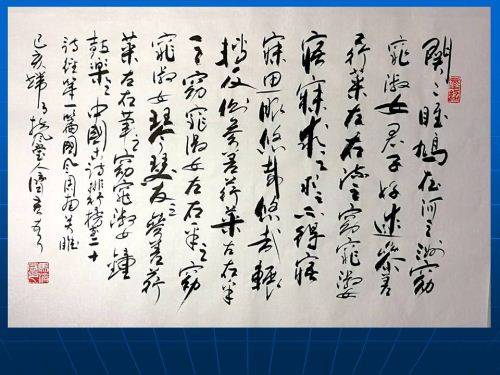 關々雎鳩在河之洲窈
窕淑女君子好逑參差
荇菜左右流之窈窕淑女
寤寐求之求之不得寤
寐思服悠哉悠哉輾
轉反側參差荇菜左右采
之窈窕淑女左右采之窈
窕淑女琴瑟友之參差荇
菜左右芼之窈窕淑女鐘
鼓樂之中國古詩排行榜二十
詩經第一篇國風周南關雎
己亥